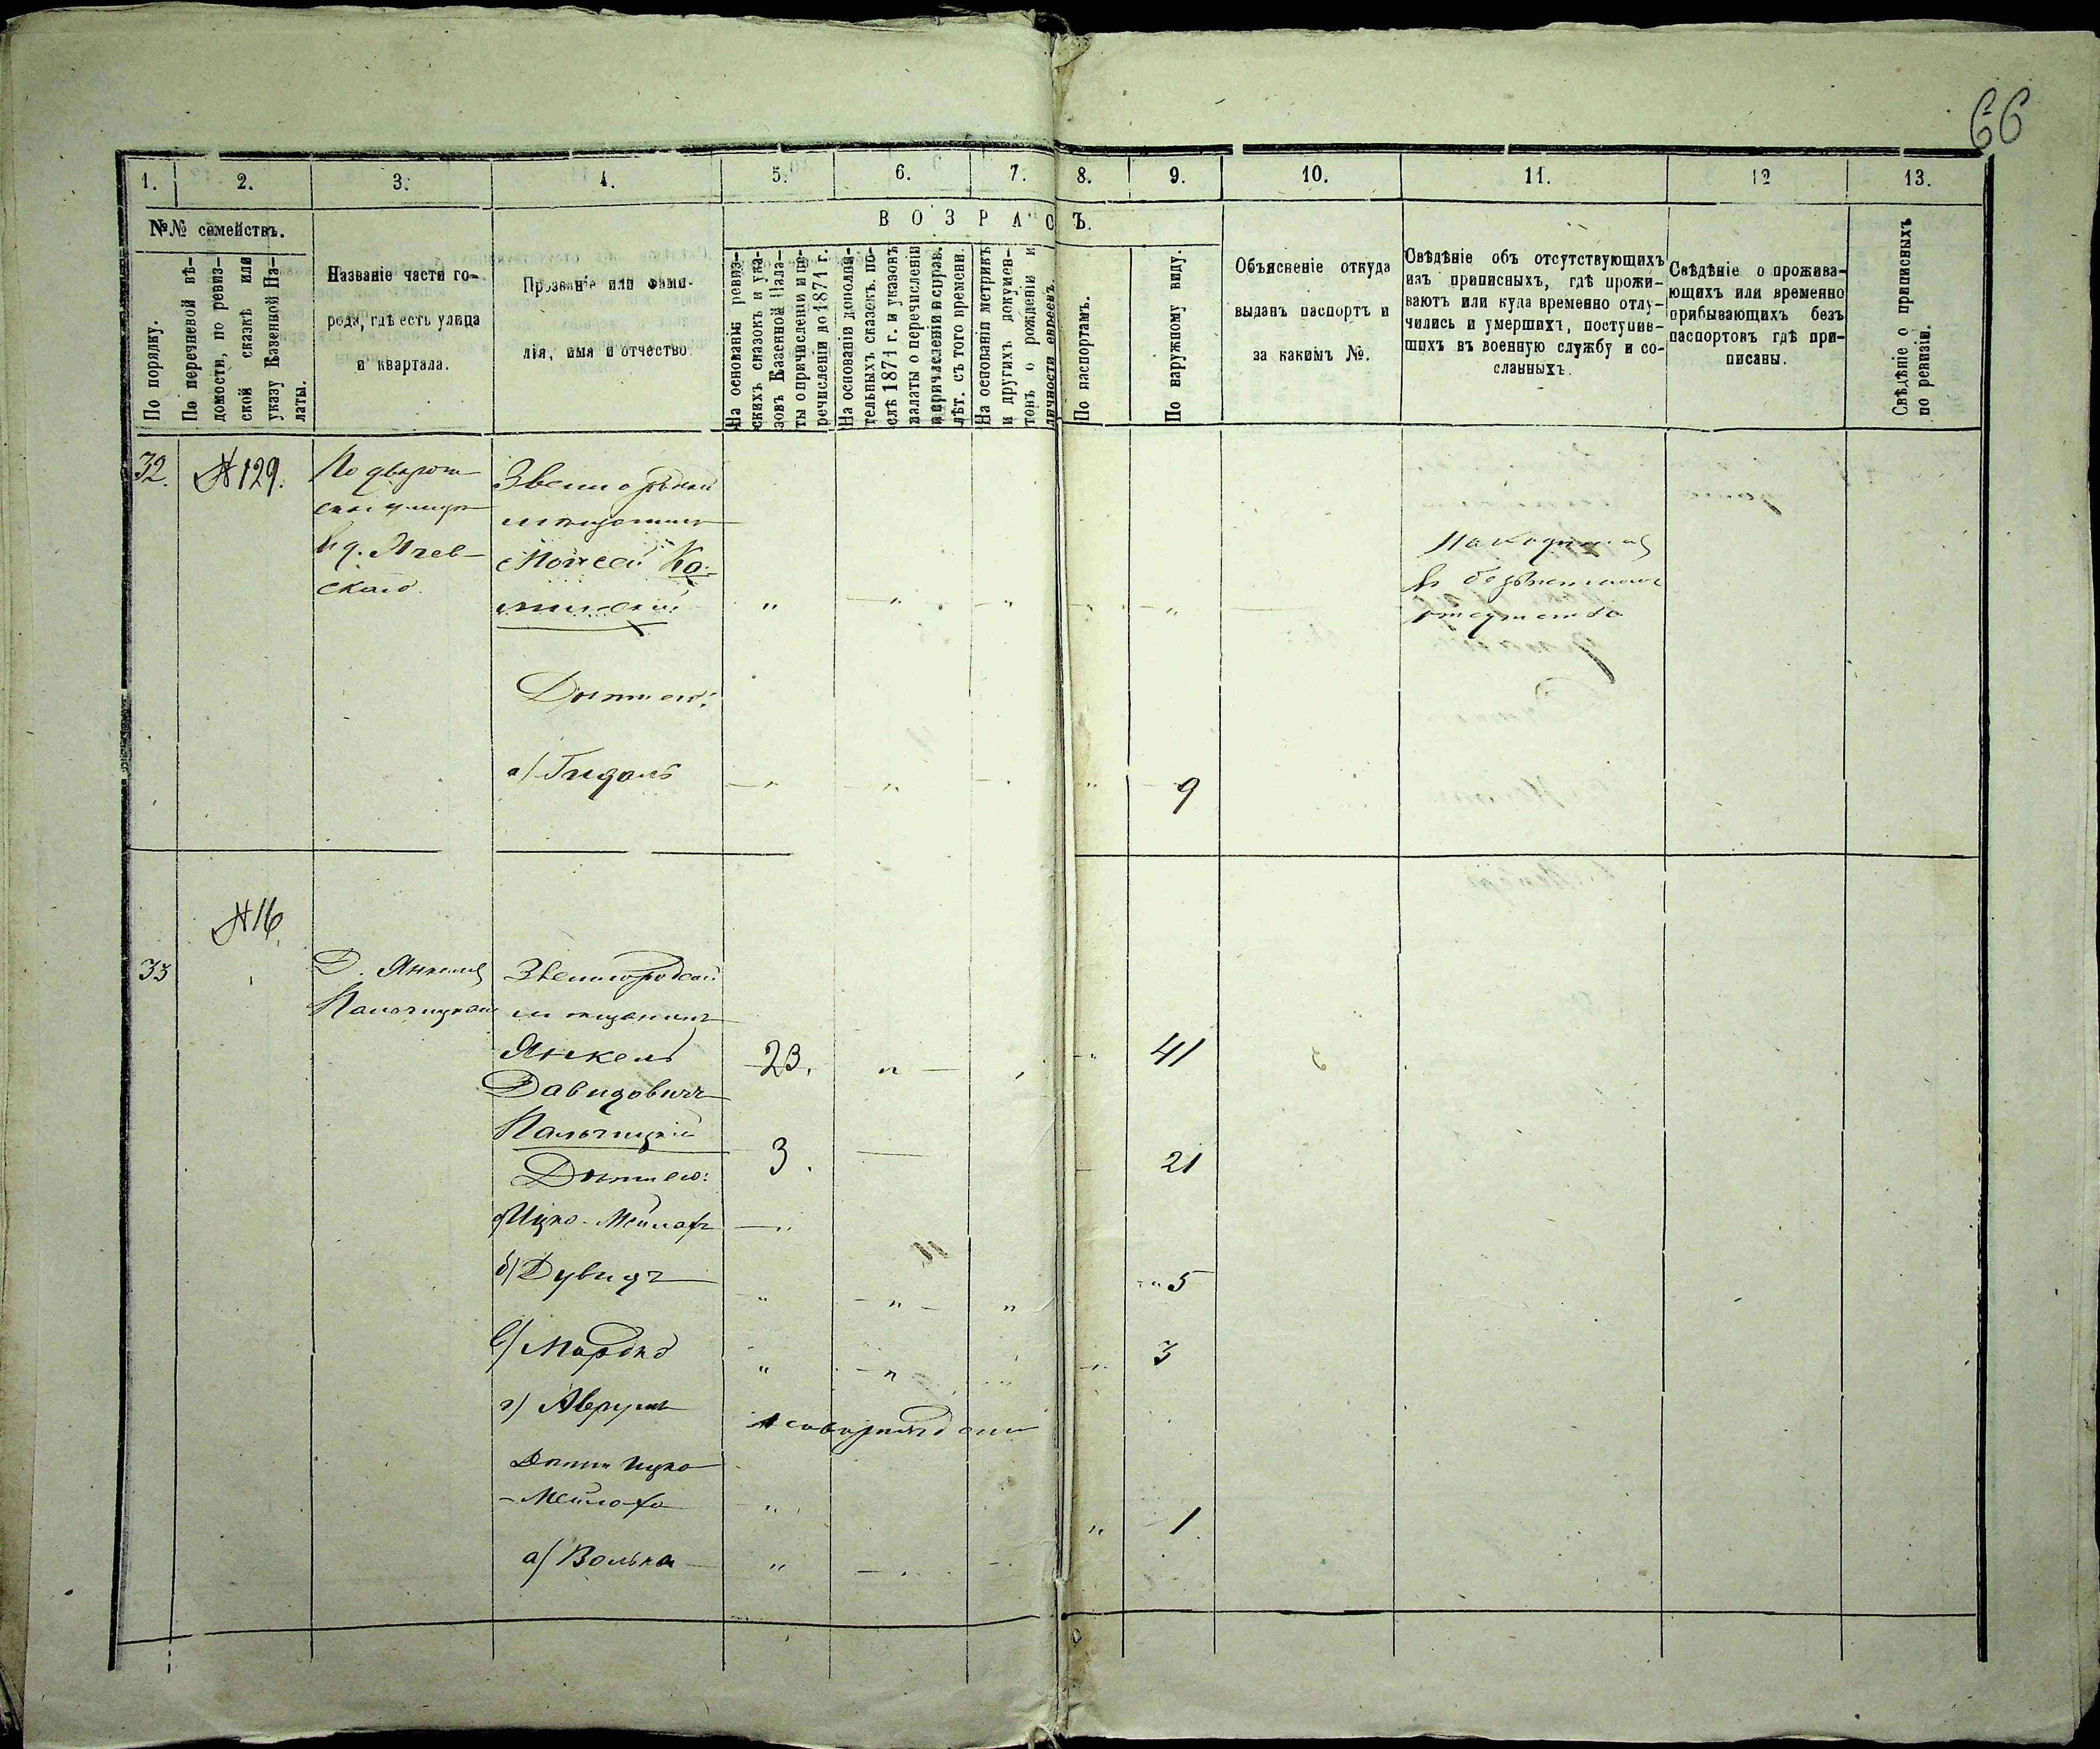 66
1. 2. 3. 4. 5. 6. 7. 8. 9. 10. 11. 12 13.
№№ семействъ.
По порядку.
По перечневой вѣ-
домости, по ревиз-
ской сказкѣ или
указу Казенной Па-
латы.
Названіе части го-
рода, гдѣ есть улица
и квартала.
Прозваніе или фами-
лія, имя и отчество
ВОЗРАСЪ.
На основаніи ревиз-
скихъ сказокъ и ука-
зовъ Казенной Пала-
ты о причисленіи и пе-
речисленіи до 1871 г.
На основаніи дополни-
тельныхъ сказокъ. по-
слѣ 1871 г. и указовъ
палаты о перечисленіи
и причисленіи и справ.
лѣт. съ того времени.
На основаніи метрикъ
и другихъ докумен-
товъ о рожденіи и
личности евреевъ.
По паспортамъ.
По наружному виду.
Объясненіе откуда
выданъ паспортъ и
за какимъ №.
Свѣдѣніе объ отсутствующихъ
изъ приписныхъ, гдѣ прожи-
ваютъ или куда временно отлу-
чились и умершихъ, поступив-
шихъ въ военную службу и со-
сланныхъ.
Свѣдѣніе о прожива-
ющихъ или временно
прибывающихъ безъ
паспортовъ гдѣ при-
писаны.
Свѣдѣніе о приписныхъ
по ревизіи.
32. №129.
скаго.
мѣщанинъ
Моисей Ка-
минскій
Находится
въ безвѣстномъ
отсутствіи
Дѣти его:
а) Гидаль 9
№16.
33 Д. Янкеля
Пальчицкаго
Звенигородскій
мѣщанинъ
Янкель 23. 41
Давидовичъ
Пальчицкій
3. 21
Дѣти его:
а) Ицко-Мейлахъ
б) Дувидъ 5
в) Мордко 3
г) Аврумъ
Дѣти Ицко
-Мейлаха
1
а) Волька